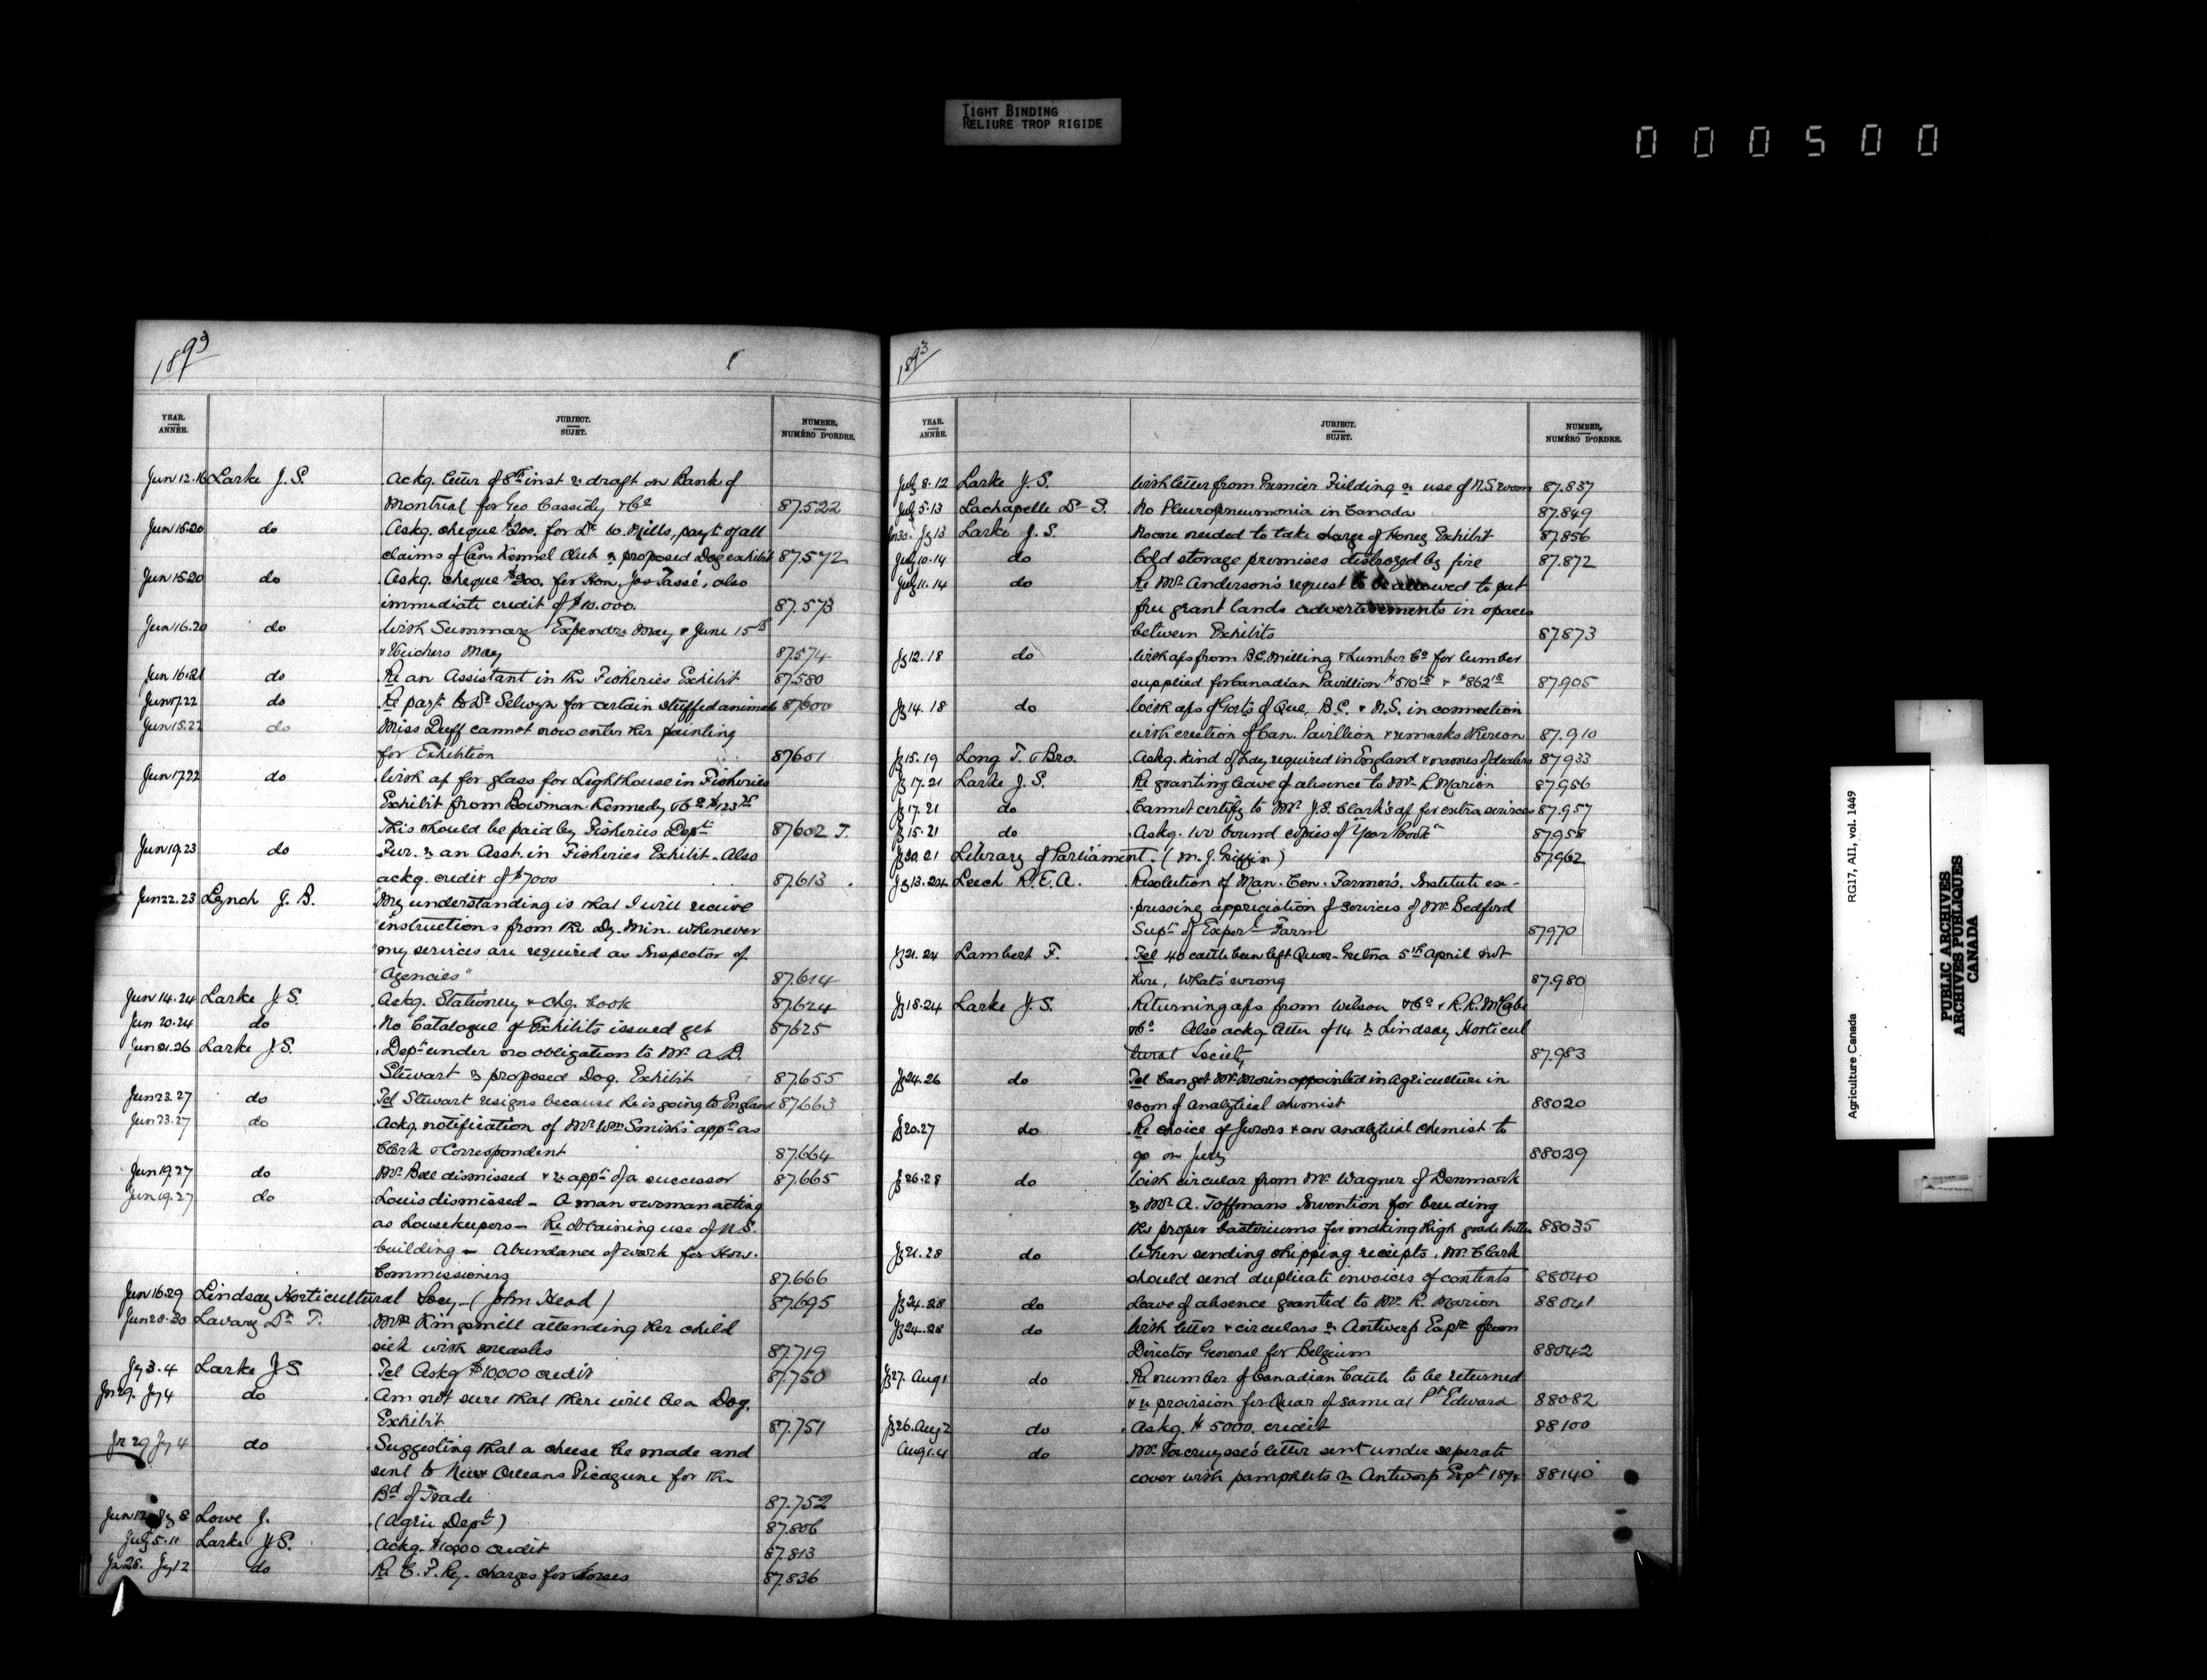 TIGHT BINDING
RELIURE TROP RIGIDE
000500
1893
YEAR. ANNÉE.
JUBJECT. SUJET.
NUMBER, NUMÉRO D'ORDRE.
Jun 12.16 Larke J. S. Ackg. letter of 8th inst re draft on Bank of
Montreal for Geo Cassidy & Co 87.522
Jun 15.20 do Askg. cheque $200. for Dr W. Mills, payt of all
claims of Can Kennel Club re proposed Dog exhibit 87.572
Jun 15.20 do Askg. cheque $200. for Hon. Jos Tassé, also
immediate credit of $10.000. 87.573
Jun 16.20 do With Summary Expendre May & June 15th
& Vouchers May 87.574
Jun 16.21 do Re an Assistant in the Fisheries Exhibit 87.580
Jun 17.22 do Re payt to Dr Selwyn for certain stuffed animals 87600
Jun 15.22 do Miss Duff cannot now enter her painting
for Exhibition 87601
Jun 17.22 do With a/c for glass for Lighthouse in Fisheries
Exhibit from Bowman Kennedy & Co $123
This should be paid by Fisheries Dept 87602 J.
Jun 19.23 do Fur. re an Asst. in Fisheries Exhibit. Also
ackg. credit of $7000 87.613
Jun 22.23 Lynch J. B. "My understanding is that I will receive
"instructions from the Dy. Min. whenever
"my services are required as Inspector of
"Agencies" 87.614
Jun 14.24 Larke J. S. Askg. Stationery & chq. book 87.624
Jun 20.24 do No Catalogue of Exhibits issued yet 87625
Jun 21.26 Larke J. S. Dept under no obligation to Mr A. D.
Stewart re proposed Dog. Exhibit 87.655
Jun 23.27 do Tel Stewart resigns because he is going to England 87.663
Jun 23.27 do Ackg. notification of Mr Wm Smith's appt as
Clerk & Correspondent 87.664
Jun 19.27 do Mr Bell dismissed & re appt of a successor 87.665
Jun 19.27 do Louis dismissed - A man & woman acting
as housekeepers - Re obtaining use of N.S.
building - Abundance of work for Hon.
Commissioners 87.666
Jun 16.29 Lindsay Horticultural Socy - (John Head) 87.695
Jun 28.30 Lavary Dr T. Mrs Kingsmill attending her child
sick with measles 87.719
Jy 3.4 Larke J S Tel Askg $10,000 credit 87.750
Jn 29. Jy 4 do Am not sure that there will be a Dog.
Exhibit 87.751
Jn 29 Jy 4 do Suggesting that a cheese be made and
sent to New Orleans Picayune for the
Bd of Trade 87.752
Jun 12 Jy 8 Lowe J. (Agric Dept) 87.806
July 5.11 Larke J S. Ackg. $10000 credit 87.813
Jn 26. Jy 12 do Re C. P. Ry. charges for horses 87.836
1893
YEAR. ANNÉE.
JUBJECT. SUJET.
NUMBER, NUMÉRO D'ORDRE.
July 8.12 Larke J. S. With letter from Premier Fielding re use of N.S. room 87.837
July 5.13 Lachapelle Dr S. No Pleuropneumonia in Canada 87.849
Jn 30. Jy 13 Larke J. S. No one needed to take charge of Honey Exhibit 87.856
July 10.14 do Cold storage premises destroyed by fire 87.872
July 11.14 do Re Mr Anderson's request to be allowed to put
free grant lands advertisements in spaces
between Exhibits 87873
Jy 12.18 do With a/cs from B.C. Milling & Lumber Co for lumber
supplied for Canadian Pavillion $510 & $862 87.905
Jy 14.18 do With a/cs of Govts of Que, B.C. & N.S. in connection
with erection of Can. Pavillion & remarks thereon 87.910
Jy 15.19 Long T. & Bro. Askg. kind of hay required in England & names of dealers 87933
Jy 17.21 Larke J. S. Re granting leave of absence to Mr R. Marion 87.956
Jy 17.21 do Cannot certify to Mr J. S. Clark's a/c for extra services 87.957
Jy 15.21 do Askg. two bound copies of "Year Book" 87958
Jy 20.21 Library of Parliament. (M. J. Griffin) 87.962
Jy 13.24 Leech R. E. A. Resolution of Man. Cen. Farmers' Institute ex-
pressing appreciation of services of Mr Bedford
Supt of Experl Farm 87970
Jy 21.24 Lambert F. Tel 40 cattle been left Quar. Gretna 5th April not
here, what's wrong 87.980
Jy 18.24 Larke J. S. Returning a/cs from Wilson & Co & R. R. McCabe
& Co Also ackg letter of 14 re Lindsay Horticul
tural Society 87.983
Jy 24.26 do Tel Can get Mr Morin appointed in Agriculture in
room of analytical chemist 88020
Jy 20.27 do Re choice of Jurors & an analytical chemist to
go on jury 88029
Jy 26.28 do With circular from Mr Wagner of Denmark
re Mr A. Toffmans Invention for breeding
the proper bacteriums for making high grade butter 88035
Jy 21.28 do When sending shipping receipts, Mr Clark
should send duplicate invoices of contents 88040
Jy 24.28 do Leave of absence granted to Mr R. Marion 88041
Jy 24.28 do With letter & circulars re Antwerp Expn from
Director General for Belgium 88042
Jy 27. Aug 1 do Re number of Canadian Cattle to be returned
& re provision for Quar of same at Pt Edward 88082
Jy 26. Aug 2 do Askg. $5000. credit 88100
Aug 1.4 do Mr letter sent under seperate
cover with pamphlets re Antwerp Expn 1894 88140
Agriculture Canada
RG17, AII, vol. 1449
PUBLIC ARCHIVES
ARCHIVES PUBLIQUES
CANADA